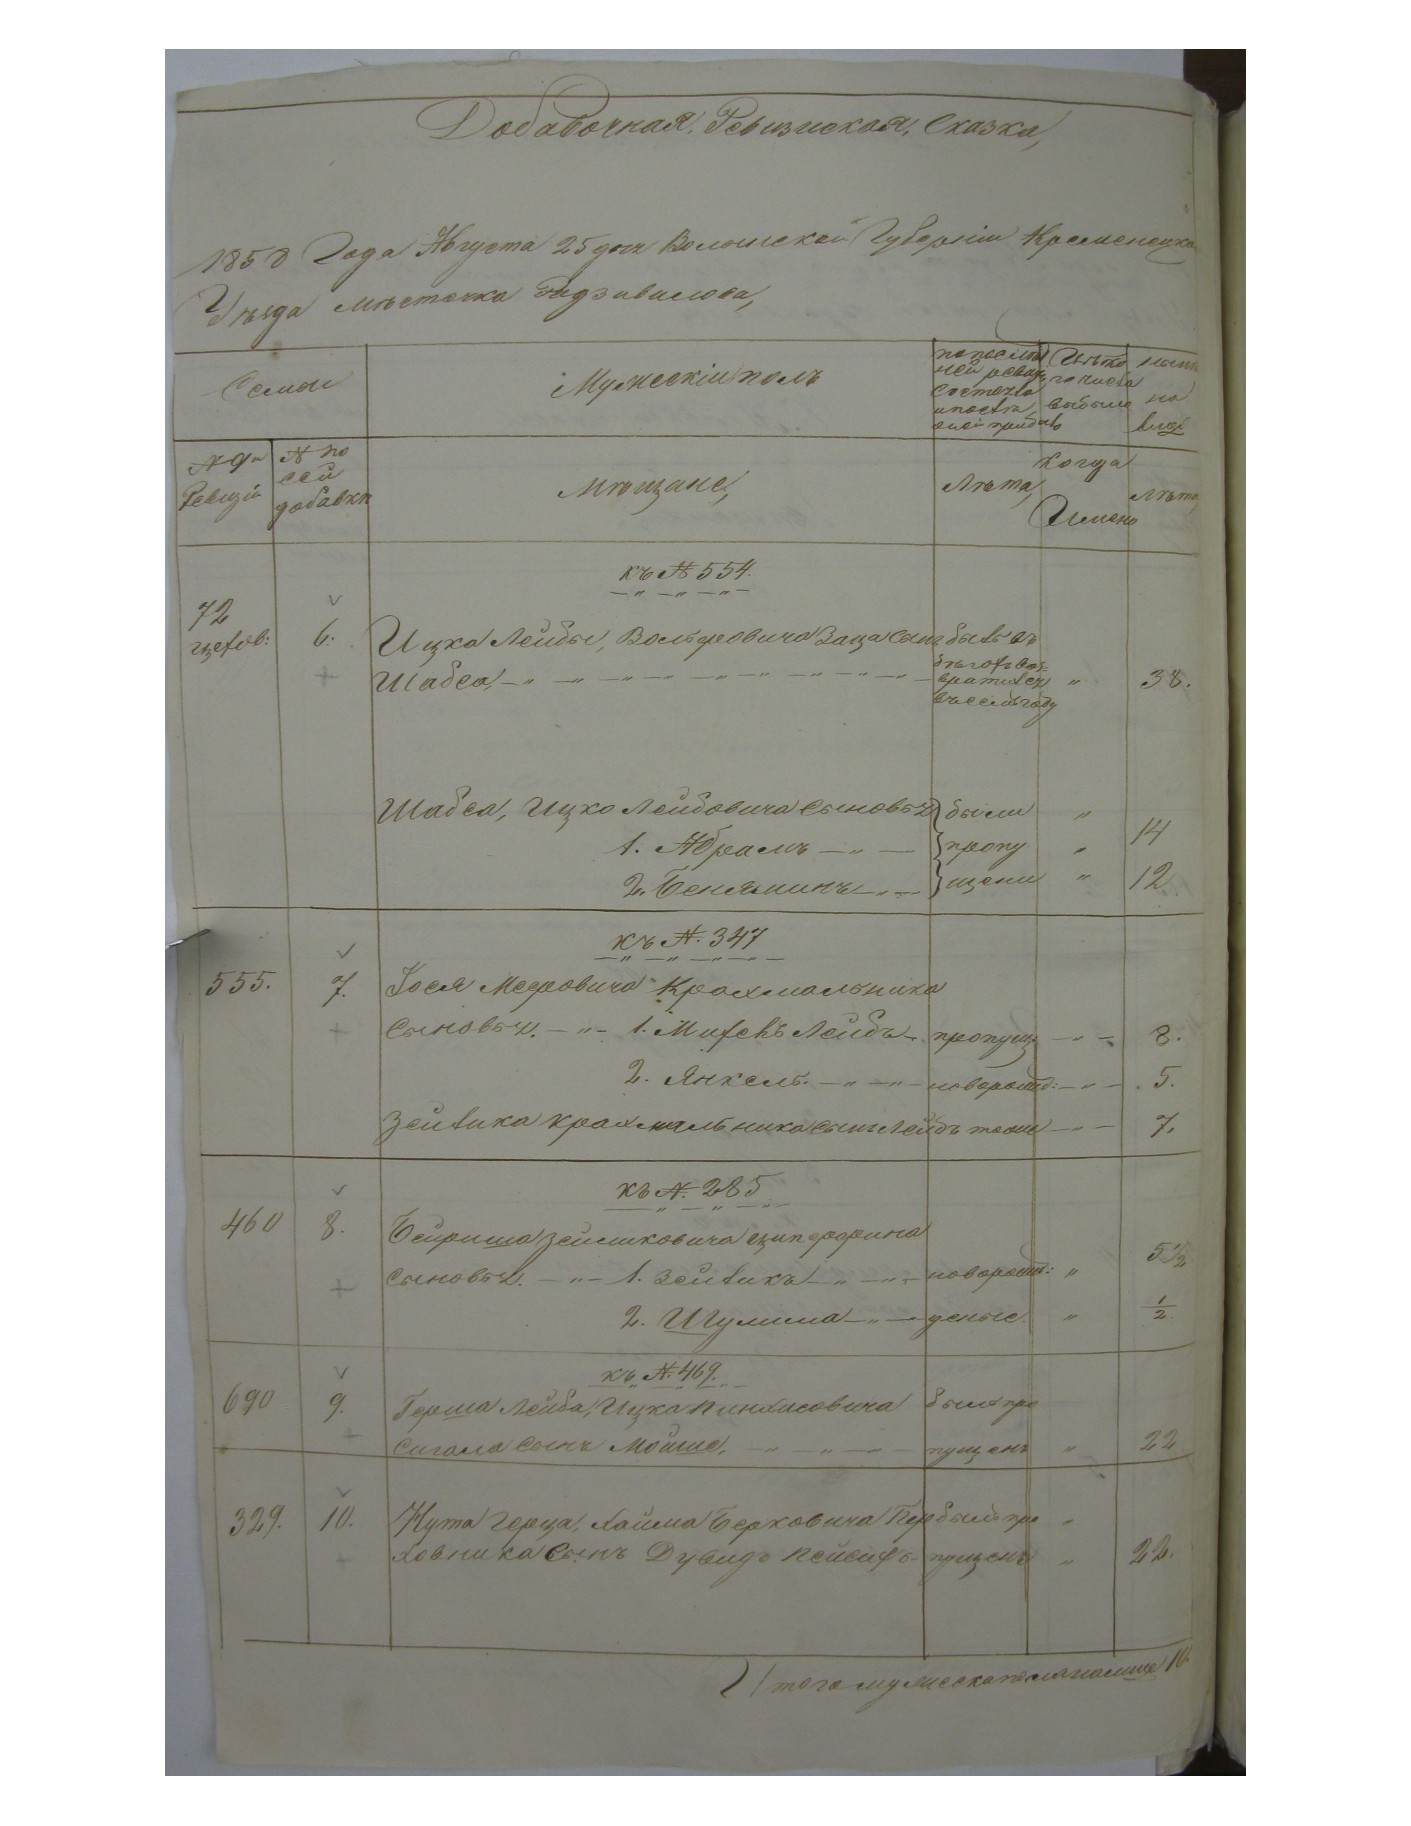 Добавочная, Ревизиская, Сказка,
1858 Года Августа 25 дня Волынской Губерніи Кременецка
Уѣзда мѣстечка Радзивилова,
Семьи
Мужескій полъ
по послѣд
ней ревиз
состояло
и послѣ
оной прибыло
Изъ то
го числа
выбыло
нынѣ
на
лицо
№ 9й
Ревизіи
№ по
сей
добавки
Мѣщане,
Лѣта,
когда
Имено
Лѣта
къ № 554.
72
цехов:
6.
Ицка Лейбы, Вольфовича Заца сынъ былъ въ
бѣгахъ воз-
Шабса, — „ — „ — „ — вратился „ 38.
въ семъ году
Шабса, Ицко Лейбовича сыновья были „
1. Абрамъ — „ — пропу „ 14
2. Беняминъ — „ — щени „ 12
къ № 347
555. 7. Іося Мееровича Крахмальника
сыновья. — „ — 1. Михель Лейбъ — пропущ: — „ — 8.
2. Янкель. — „ — „ — новорожд: — „ — 5.
Зейлика Крахмальника сынъ Лейбъ тоже — „ — 7.
къ № 285
460 8. Бейриша Зеликовича Ципорфина
сыновья. — „ — 1. Зейликъ — „ — „ — новорожд: „ 5 1/2
2. Шулима — „ — „ 1/2
къ № 469.
690 9. Герша Лейба, Ицка Пинхасовича былъ про
Сигала сынъ Мойше, — „ — „ — пущенъ „ 22
329. 10. Нута Герца, Хаима Берковича Пер былъ про „
ховника Сынъ Дувидъ Пейсифъ — пущенъ „ 22.
Итого мужеска пола на лицо 10